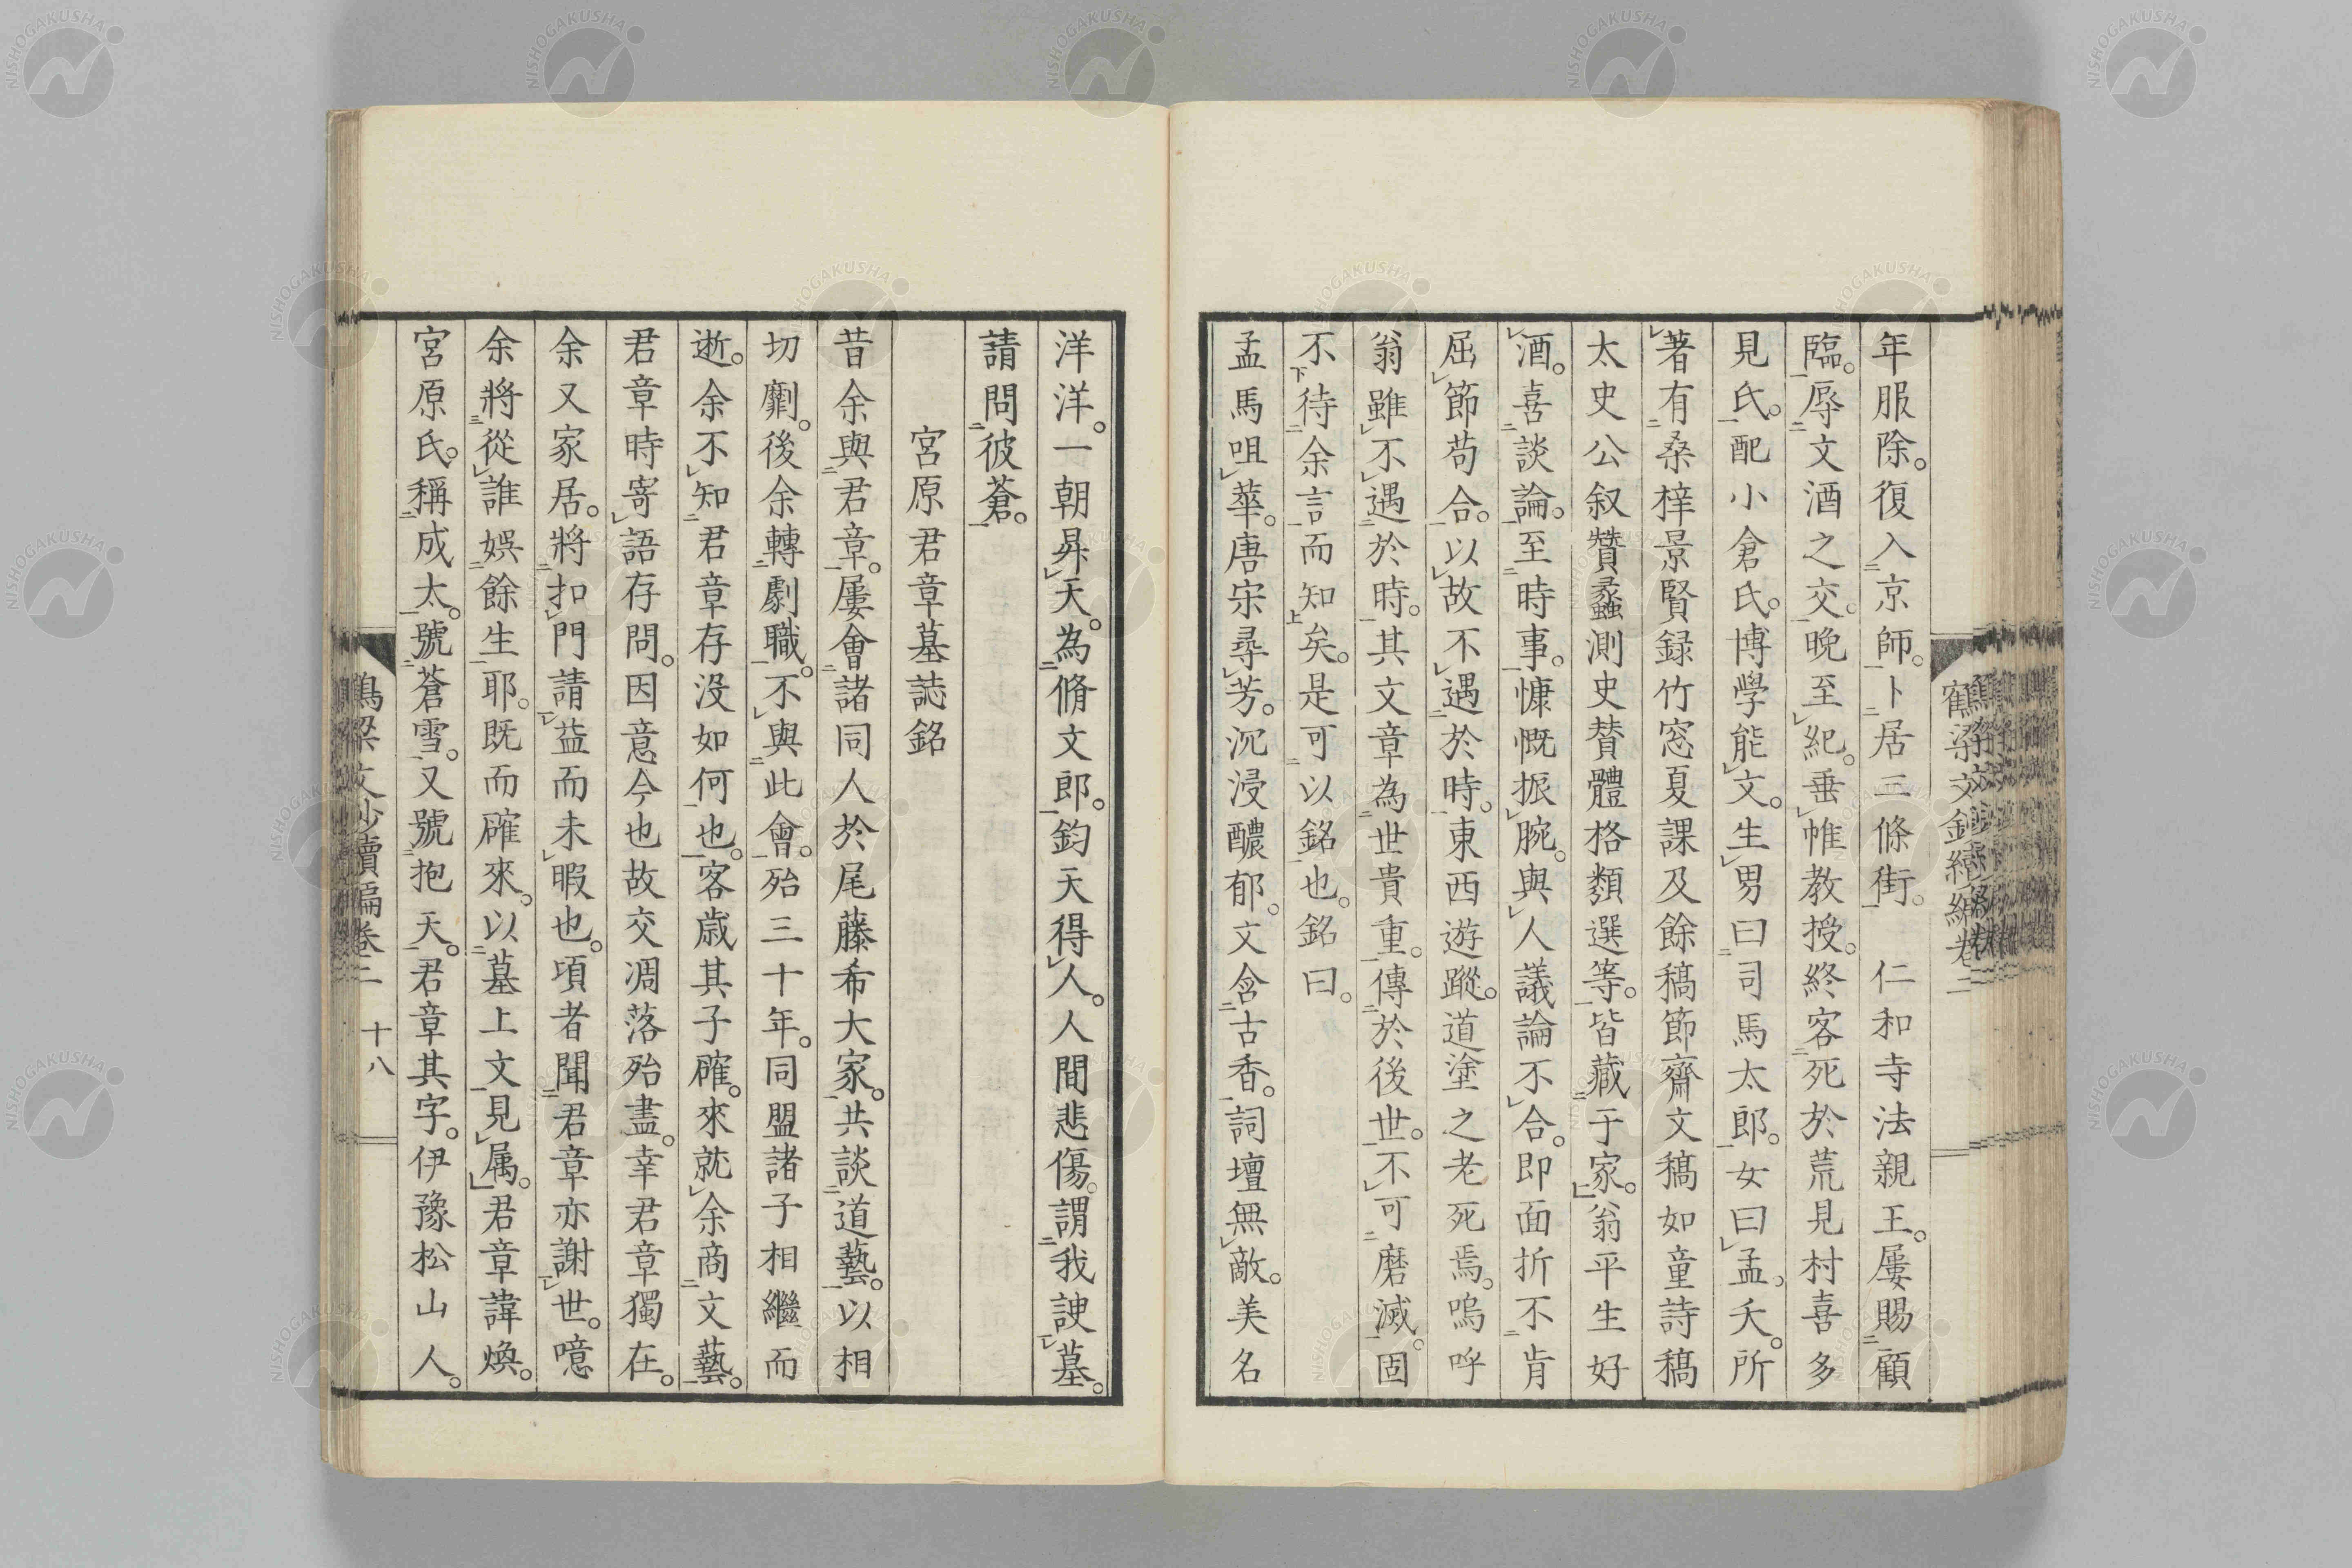 年服除。復入京師。卜居三條街。　仁和寺法親王。屢賜顧
臨。辱文酒之交。晩至紀。垂帷教授。終客死於荒見村喜多
見氏。配小倉氏。博學能文。生男曰司馬太郎。女曰孟。夭。所
著有桑梓景賢録竹窓夏課及餘稿節齋文稿如童詩稿
太史公叙贊蠡測史賛體格類選等。皆藏于家。翁平生好
酒。喜談論。至時事。慷慨振腕。與人議論不合。即面折不肯
屈節苟合。以故不遇於時。東西遊蹤。道塗之老死焉。嗚呼
翁雖不遇於時。其文章為世貴重。傳於後世。不可磨滅。固
不待余言而知矣。是可以銘也。銘曰。
孟馬咀華。唐宋尋芳。沉浸醲郁。文含古香。詞壇無敵。美名
洋洋。一朝昇天。為脩文郎。鈞天得人。人間悲傷。謂我諛墓。
請問彼蒼。
宮原君章墓誌銘
昔余與君章。屢會諸同人於尾藤希大家。共談道藝。以相
切劘。後余轉劇職。不與此會。殆三十年。同盟諸子相繼而
逝。余不知君章存没如何也。客歳其子確。來就余商文藝。
君章時寄語存問。因意今也故交凋落殆盡。幸君章獨在。
余又家居。將扣門請益而未暇也。頃者聞君章亦謝世。噫
余將從誰娯餘生耶。既而確來。以墓上文見属。君章諱煥。
宮原氏。稱成太。號蒼雪。又號抱天。君章其字。伊豫松山人。
鶴梁文鈔續編巻二　十八